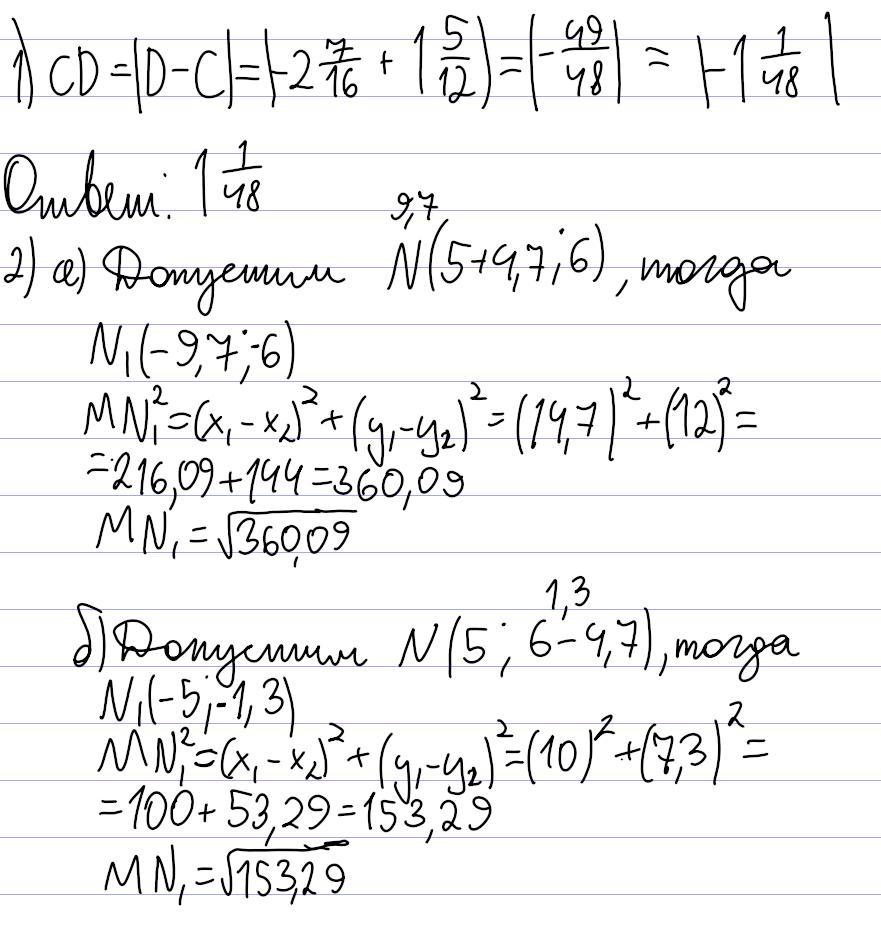 1) CD = |D-C| = |-2 7/16 + 1 5/12| = |-49/48| = |-1 1/48|
Ответ: 1 1/48
9,7
2) а) Допустим N(5+4,7; 6), тогда
N₁(-9,7; -6)
MN₁² = (x₁-x₂)² + (y₁-y₂)² = (14,7)² + (12)² =
= 216,09 + 144 = 360,09
MN₁ = √360,09
1,3
б) Допустим N(5; 6-4,7), тогда
N₁(-5; -1,3)
MN₁² = (x₁-x₂)² + (y₁-y₂)² = (10)² + (7,3)² =
= 100 + 53,29 = 153,29
MN₁ = √153,29